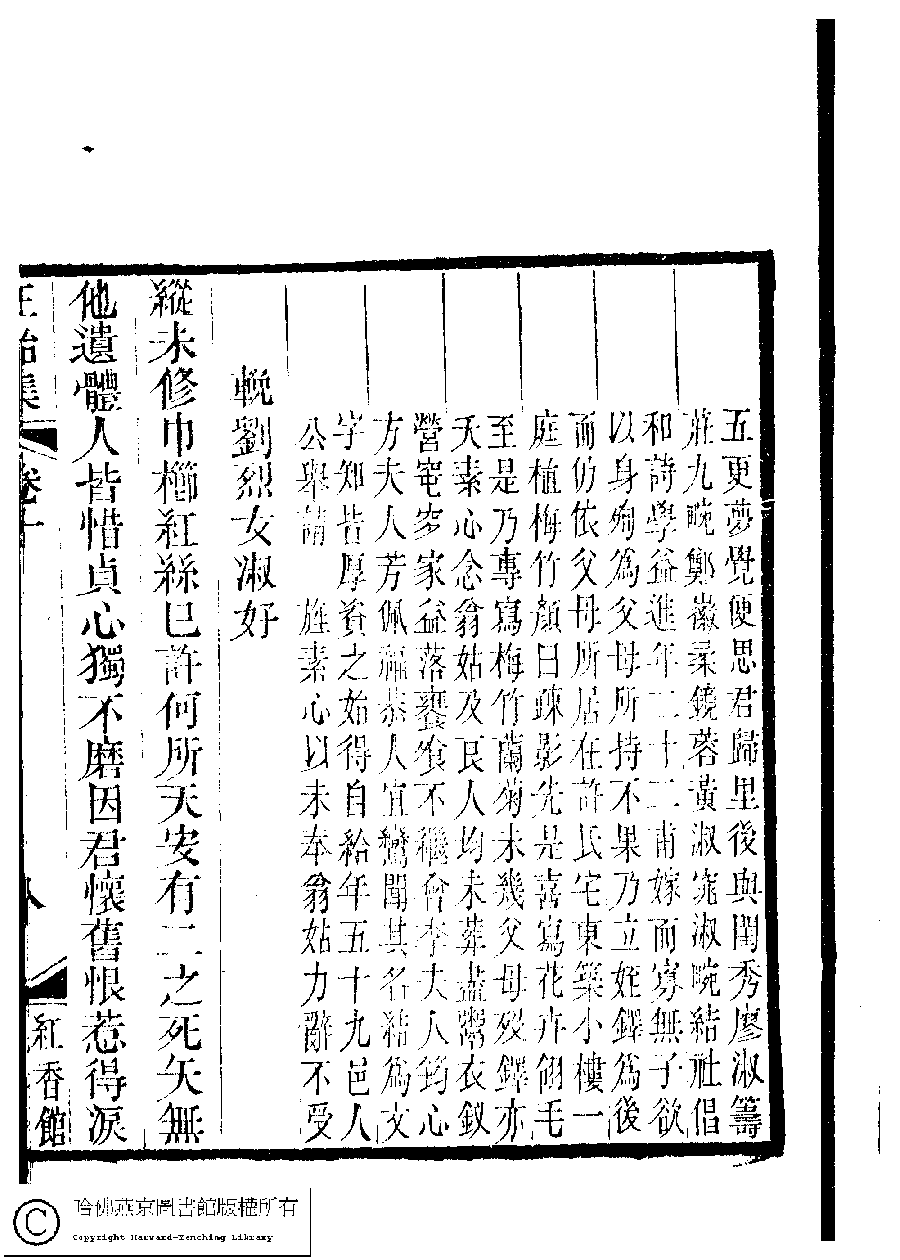 五更夢覺便思君歸里後與閨秀廖淑籌
莊九畹鄭徽柔鏡蓉黃淑窕淑畹結社倡
和詩學益進年二十二甫嫁而寡無子欲
以身殉為父母所持不果乃立姪鐸為後
而仍依父母所居在許氏宅東築小樓一
庭植梅竹顏曰疎影先是喜寫花卉翎毛
至是乃專寫梅竹蘭菊未幾父母歿鐸亦
夭素心念翁姑及艮人均未葬盡鬻衣釵
營窀穸家益落饔飧不繼會李夫人筠心
方夫人芳佩福恭人宜鸞聞其名結為文
字知皆厚資之始得自給年五十九邑人
公舉請　旌素心以未奉翁姑力辭不受
輓劉烈女淑好
縱未修巾櫛紅絲已許何所天安有二之死矢無
他遺體人皆惜貞心獨不磨因君懷舊恨惹得淚
正始集 卷十 八 紅香館
哈佛燕京圖書館版權所有
Copyright Harvard-Yenching Library